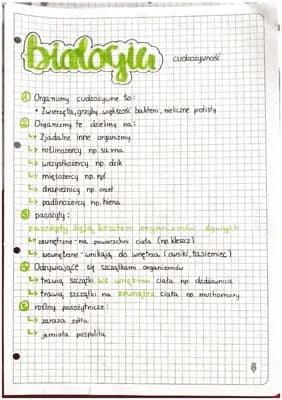 biologia
cudzożywność
1 Organizmy cudzożywne to:
• Zwierzęta, grzyby, większość bakterii, nieliczne protisty
2 Organizmy te dzielimy na:
↳ Zjadalne inne organizmy
↳ roślinożercy np. sarna
↳ wszystkożercy np. dzik
↳ mięsożercy np. ryś
↳ drapieżnicy np. orzeł
↳ padlinożercy np. hiena
3 pasożyty:
pasożyty żyją kosztem organizmów żywych
↳ zewnętrzne - na powierzchni ciała (np. kleszcz)
↳ wewnętrzne - wnikają do wnętrza (owsiki, tasiemiec)
4 Odżywiające się szczątkami organizmów
↳ trawią szczątki we wnętrzu ciała np. dżdżownica
↳ trawią szczątki na zewnątrz ciała np. muchomory
5 rośliny pasożytnicze:
↳ zaraza żółta
↳ jemioła pospolita